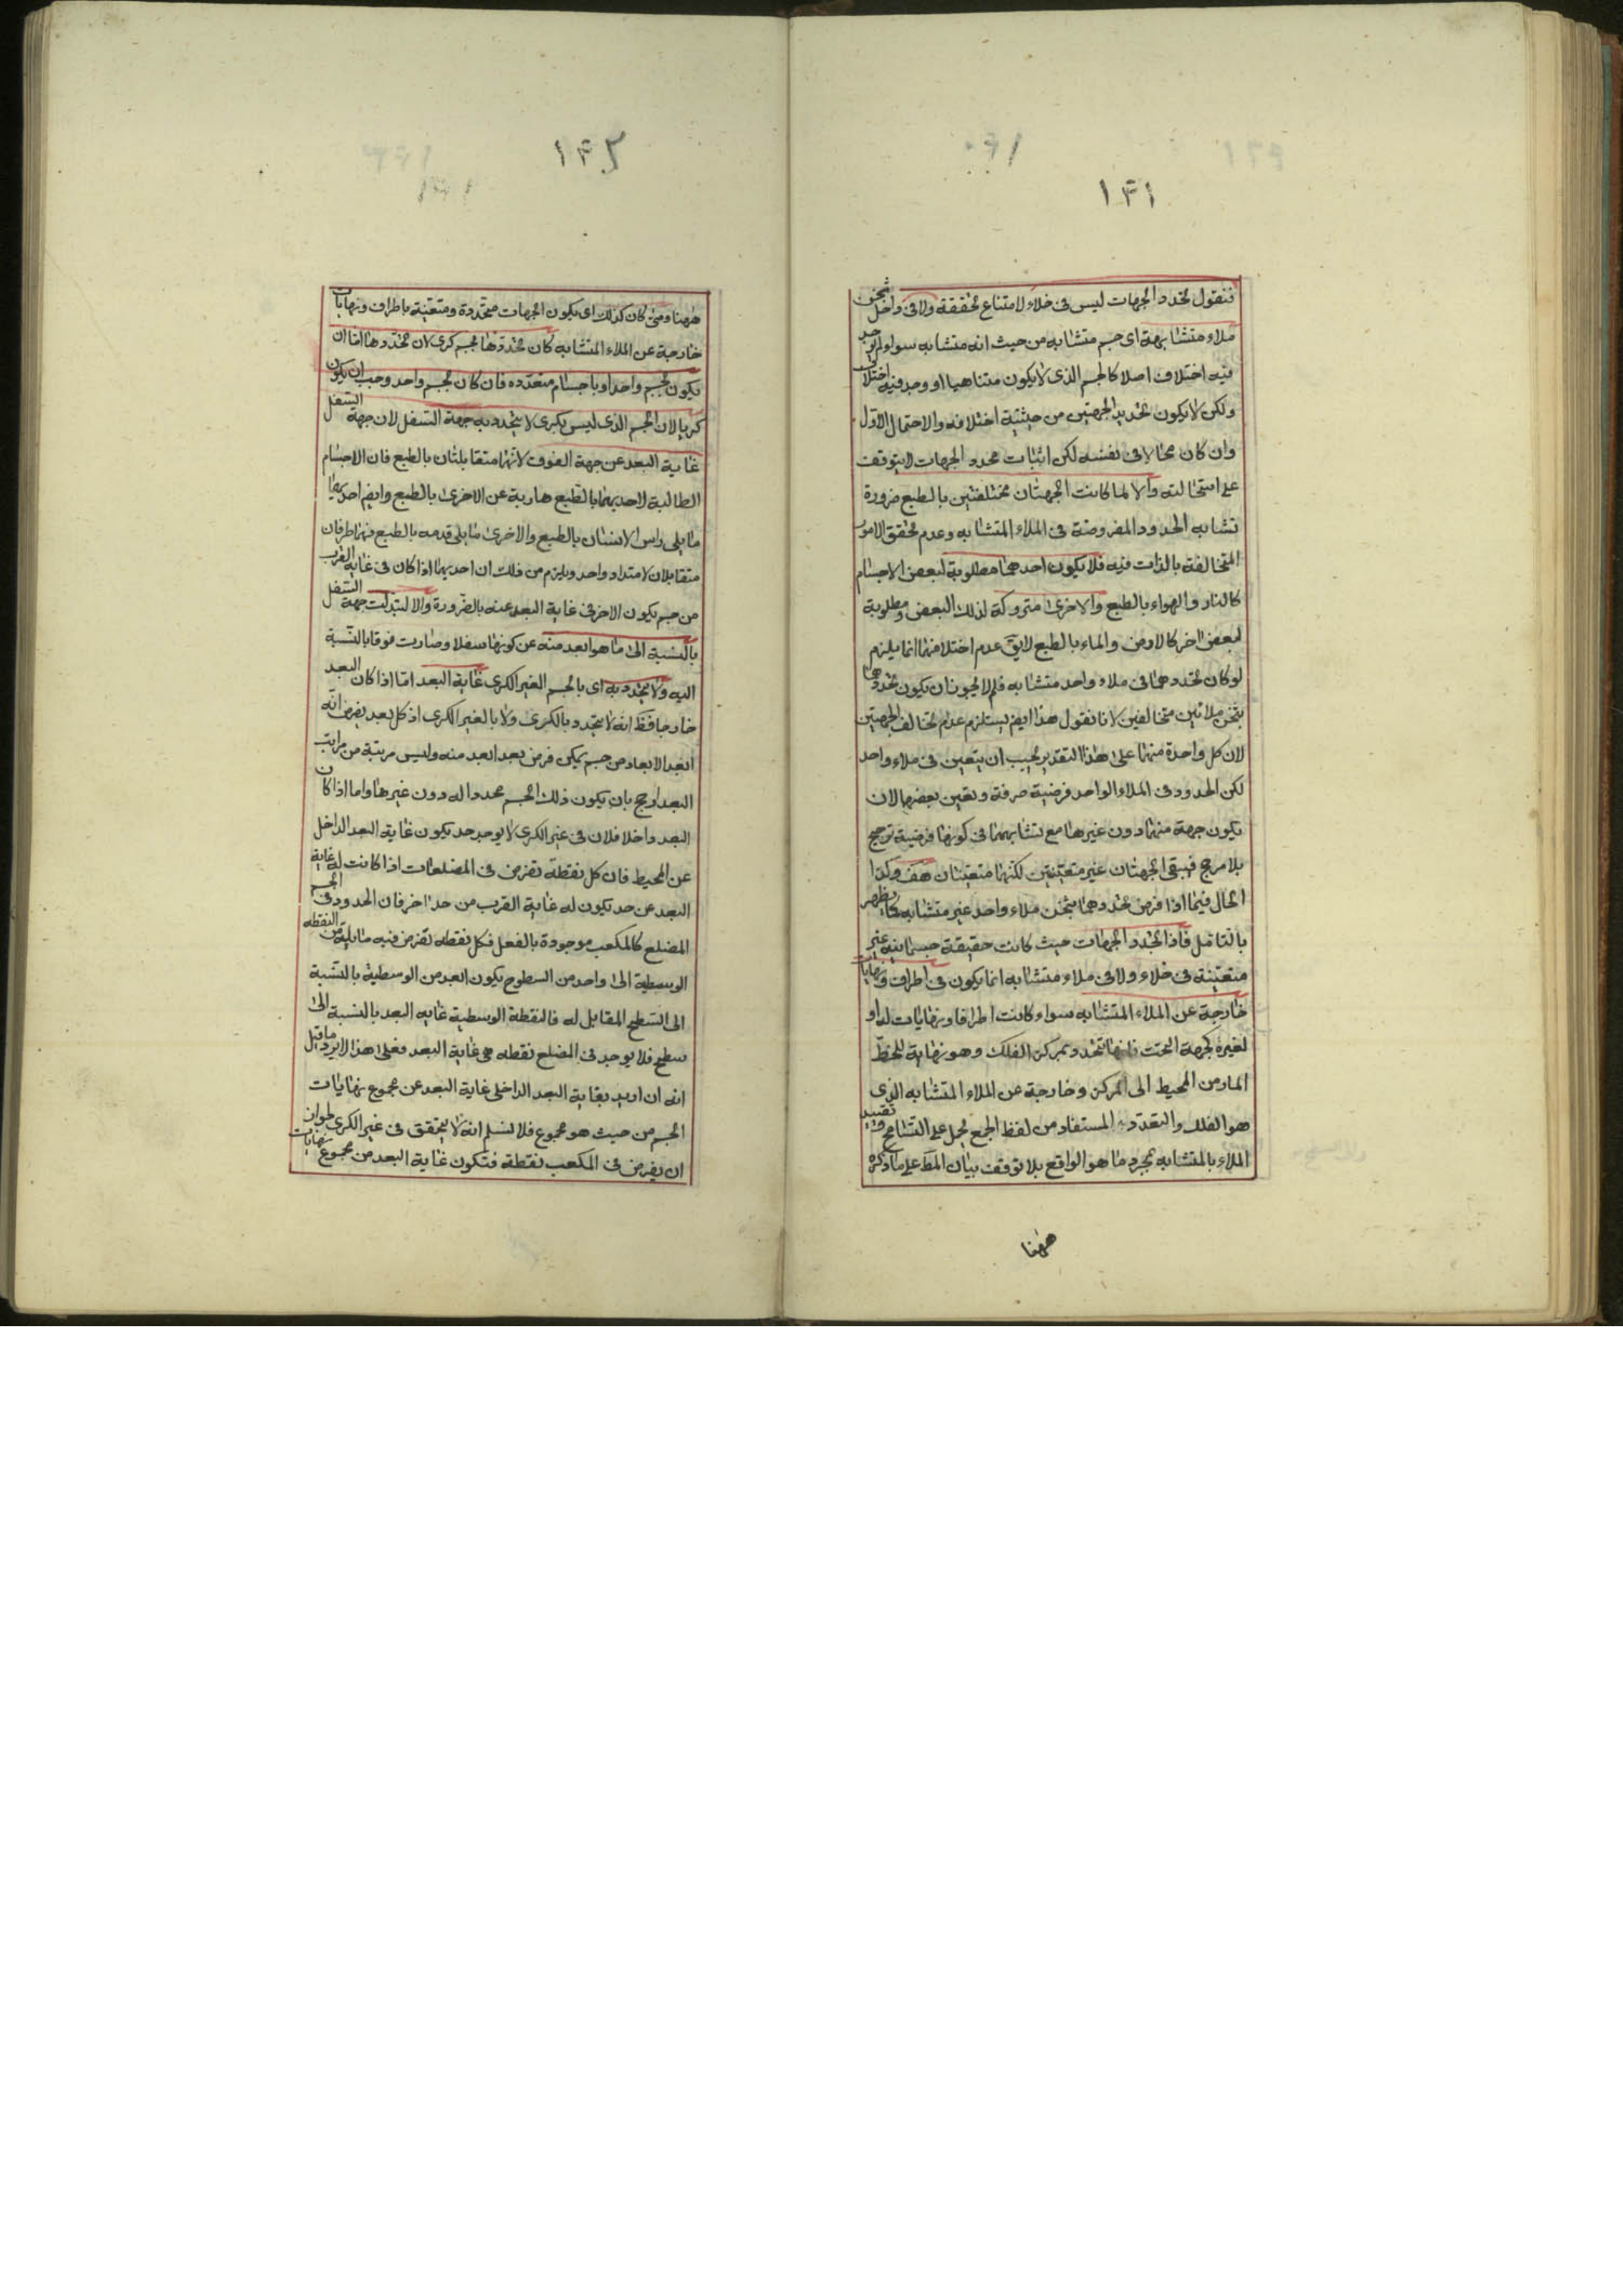 ١٤١
فنقول تحدد الجهات ليس فى خلاء لامتناع تحققه ولا فى داخل ثخن
ملاء متشابهة اى جسم متشابه من حيث انه متشابه سواء لم يوجد
فيه اختلاف اصلا كالجسم الذى لا يكون متناهيا او وجد فيه اختلاف
ولكن لا يكون تحديد الجهتين من حيثية اختلافه والاحتمال الاول
وان كان محالا فى نفسه لكن اثبات محدد الجهات لا يتوقف
على استحالته والا لما كانت الجهتان مختلفتين بالطبع ضرورة
تشابه الحدود المفروضة فى الملاء المتشابه وعدم تحقق الامور
المتخالفة بالذات فيه فلا يكون احدهما مطلوبة لبعض الاجسام
كالنار والهواء بالطبع والاخرى متروكة لذلك البعض ومطلوبة
لبعض اخر كالارض والماء بالطبع لايق عدم اختلافهما انما يلزم
لو كان تحددهما فى ملاء واحد متشابه فلم لا يجوز ان يكون تحددهما
بثخن ملائين متخالفين لانا نقول هذا ايض يستلزم عدم تخالف الجهتين
لان كل واحدة منهما على هذا التقدير يجب ان يتعين فى ملاء واحد
لكن الحدود فى الملاء الواحد فرضية صرفة وتعين بعضها لان
يكون جهة منهما دون غيرها مع تشابههما فى كونها فرضية ترجيح
بلا مرجح فبقى الجهتان غير متعينتين لكنهما متعينتان هف وكذا
الحال فيما اذا فرض تحددهما بثخن ملاء واحد غير متشابه كما يظهر
بالتامل فاذا تحدد الجهات حيث كانت حقيقة جسمانيه غير
متعينة فى خلاء ولا فى ملاء متشابه انما يكون فى اطراف ونهايات
خارجة عن الملاء المتشابه سواء كانت اطرافا ونهايات له او
لغيره كجهة التحت فانها تتحدد بمركز الفلك وهو نهاية للخط
المار من المحيط الى المركز وخارجة عن الملاء المتشابه الذى
هو الفلك والتعدد المستفاد من لفظ الجمع يحمل على التسامح وتقييد
الملاء بالمتشابه لمجرد ما هو الواقع بلا توقف بيان المط على ما ذكره
ههنا
١٤٢
ههنا ومتى كان كذلك اى يكون الجهات متحددة ومتعينة باطراف ونهايات
خارجة عن الملاء المتشابه كان تحددها بجسم كرى لان تحددها اما ان
يكون بجسم واحد او باجسام متعدده فان كان بجسم واحد وجب ان يكون
كريا لان الجسم الذى ليس بكرى لا يتحدد به جهة السفل لان جهة السفل
غاية البعد عن جهة الفوق لانهما متقابلتان بالطبع فان الاجسام
الطالبة لاحديهما بالطبع هاربة عن الاخرى بالطبع وايض احديهما
ما يلى راس الانسان بالطبع والاخرى ما يلى قدمه بالطبع فهما طرفان
متقابلان لامتداد واحد ويلزم من ذلك ان احديهما اذا كان فى غاية القرب
من جسم يكون الاخر فى غاية البعد عنه بالضرورة والا لتبدلت جهة السفل
بالنسبة الى ما هو ابعد منه عن كونها سفلا وصارت فوقا بالنسبة
اليه ولا يتحدد به اى بالجسم الغير الكرى غاية البعد اما اذا كان البعد
خارجا فظ انه لا يتحدد بالكرى ولا بالغير الكرى اذ كل بعد يفرض انه
ابعد الابعاد من جسم يمكن فرض بعد ابعد منه وليس مرتبة من مراتب
البعد ارجح بان يكون ذلك الجسم محددا له دون غيرها واما اذا كان
البعد داخلا فلان فى غير الكرى لا يوجد حد يكون غاية البعد الداخل
عن المحيط فان كل نقطة تفرض فى المضلعات اذا كانت له غاية
البعد عن حد تكون له غاية القرب من حد اخر فان الحدود فى الجسم
المضلع كالمكعب موجودة بالفعل فكل نقطه تفرض فيه ما يليه من النقطه
الوسطية الى واحد من السطوح يكون ابعد من الوسطية بالنسبة
الى السطح المقابل له فالنقطة الوسطية غايه البعد بالنسبة الى
سطح فلا يوجد فى المضلع نقطه هى غاية البعد فعلى هذا لا يرد ما قيل
انه ان اريد بغاية البعد الداخلى غاية البعد عن مجموع نهايات
الجسم من حيث هو مجموع فلا نسلم انه لا يتحقق فى غير الكرى لجواز
ان يفرض فى المكعب نقطة فتكون غاية البعد من مجموع نهايات